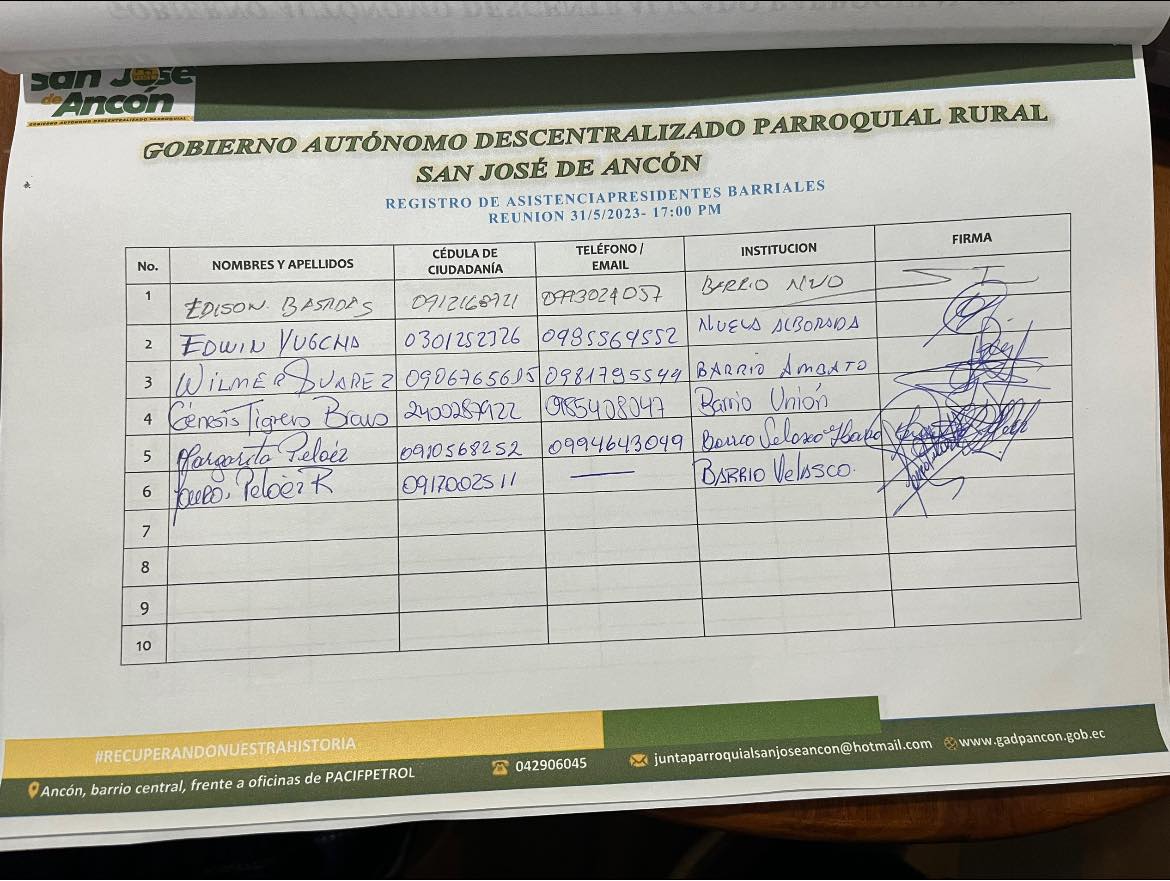 San José
de Ancón
GOBIERNO AUTÓNOMO DESCENTRALIZADO PARROQUIAL
GOBIERNO AUTÓNOMO DESCENTRALIZADO PARROQUIAL RURAL
SAN JOSÉ DE ANCÓN
REGISTRO DE ASISTENCIAPRESIDENTES BARRIALES
REUNION 31/5/2023- 17:00 PM
No. NOMBRES Y APELLIDOS CÉDULA DE CIUDADANÍA TELÉFONO / EMAIL INSTITUCION FIRMA
1 EDISON. BASADAS 0912168921 0993024057 BARRIO
2 EDWIN YUGCHA 0301252326 0985564552 NUEVA ALBORADA
3 WILMER SUAREZ 0906765615 0981795549 BARRIO AMBATO
4 Génesis Tigrero Bravo 2400287922 0985408047 Barrio Unión
5 Margarita Peláez 0910568252 0994643049 Barrio Velasco Ibarra
6 Peláez R 0917002511 BARRIO VELASCO.
7
8
9
10
#RECUPERANDONUESTRAHISTORIA
Ancón, barrio central, frente a oficinas de PACIFPETROL 042906045 juntaparroquialsanjoseancon@hotmail.com www.gadpancon.gob.ec